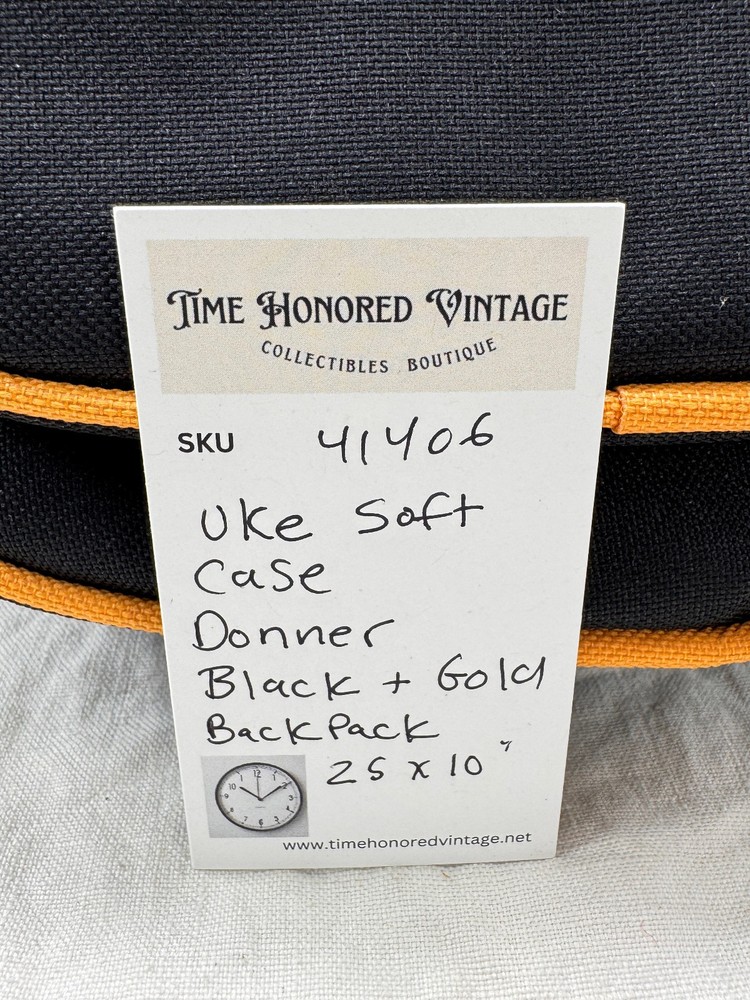 TIME HONORED VINTAGE
COLLECTIBLES BOUTIQUE
SKU 41406
Uke Soft
Case
Donner
Black + Gold
BackPack
25 x 10"
www.timehonoredvintage.net